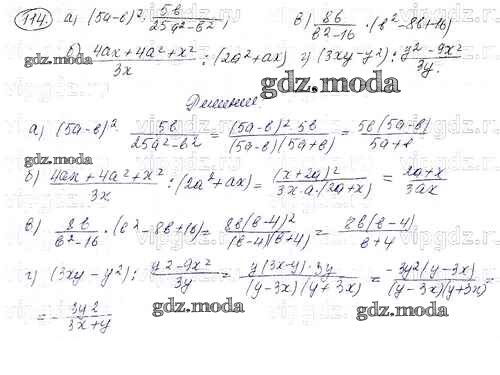 114. а) (5a-b)² · 5b/(25a²-b²); в) 8b/(b²-16) · (b²-8b+16)
б) (4ax+4a²+x²)/3x : (2a²+ax) г) (3xy-y²) : (y²-9x²)/3y.
gdz.moda
gdz.moda
Решение.
а) (5a-b)² · 5b/(25a²-b²) = (5a-b)²·5b/((5a-b)(5a+b)) = 5b(5a-b)/(5a+b)
gdz.moda
б) (4ax+4a²+x²)/3x : (2a²+ax) = (x+2a)²/(3x·a·(2a+x)) = (2a+x)/3ax
в) 8b/(b²-16) · (b²-8b+16) = 8b(b-4)²/((b-4)(b+4)) = 8b(b-4)/(b+4)
г) (3xy-y²) : (y²-9x²)/3y = y(3x-y)·3y/((y-3x)(y+3x)) = -3y²(y-3x)/((y-3x)(y+3x)) =
gdz.moda
gdz.moda
= - 3y²/(3x+y)